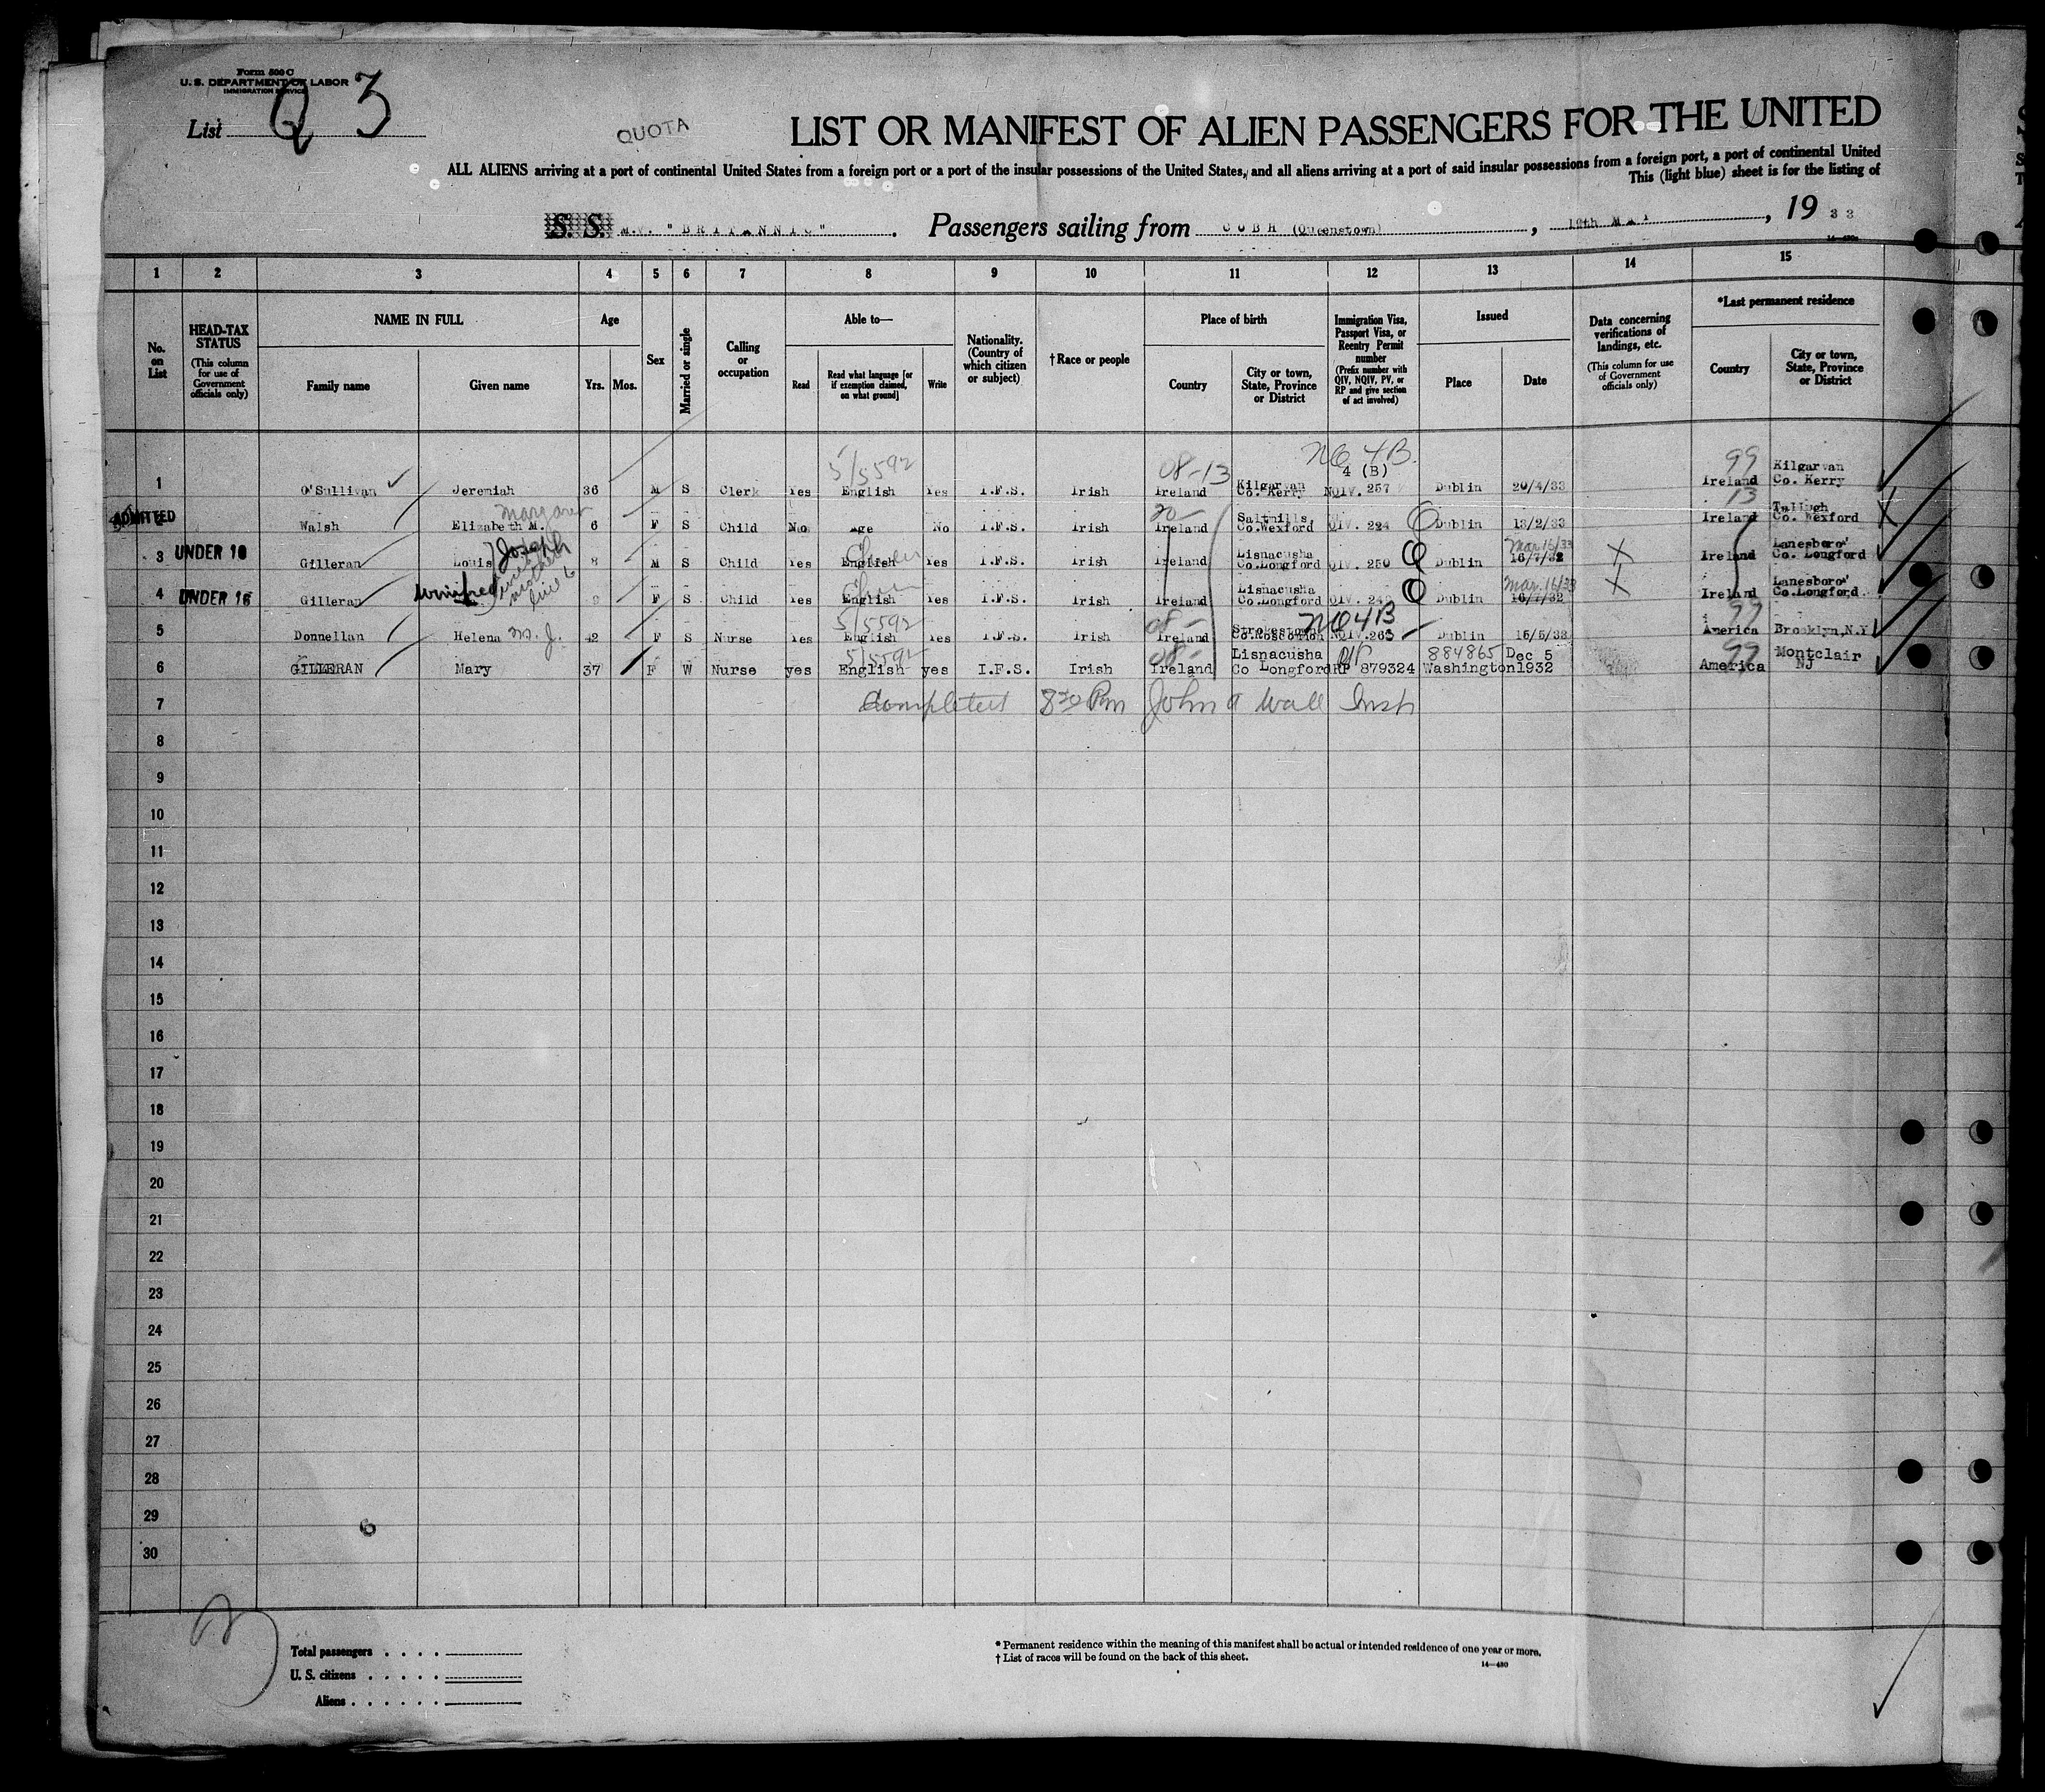 Form 500 C
U. S. DEPARTMENT OF LABOR
IMMIGRATION SERVICE
List Q 3
QUOTA
LIST OR MANIFEST OF ALIEN PASSENGERS FOR THE UNITED
ALL ALIENS arriving at a port of continental United States from a foreign port or a port of the insular possessions of the United States, and all aliens arriving at a port of said insular possessions from a foreign port, a port of continental United
This (light blue) sheet is for the listing of
S. S. M.V. "BRITANNIC". Passengers sailing from COBH (Queenstown), MAY, 19 33
1 2 3 4 5 6 7 8 9 10 11 12 13 14 15
No. on List
HEAD-TAX STATUS (This column for use of Government officials only)
NAME IN FULL
Family name Given name
Age
Yrs. Mos.
Sex
Married or single
Calling or occupation
Able to—
Read Read what language [or if exemption claimed, on what ground] Write
Nationality. (Country of which citizen or subject)
†Race or people
Place of birth
Country City or town, State, Province or District
Immigration Visa, Passport Visa, or Reentry Permit number (Prefix number with QIV, NQIV, PV, or RP and give section of act involved)
Issued
Place Date
Data concerning verifications of landings, etc. (This column for use of Government officials only)
*Last permanent residence
Country City or town, State, Province or District
5/5592 08-13 NQ 4B. 99
1 O'Sullivan Jeremiah 36 M S Clerk Yes English Yes I.F.S. Irish Ireland Kilgarvan Co. Kerry 4 (B) NQIV. 257 Dublin 20/4/33 Ireland Kilgarvan Co. Kerry
ADMITTED Margaret 20- 13
2 Walsh Elizabeth M. 6 F S Child No Age No I.F.S. Irish Ireland Saltmills, Co.Wexford QIV. 224 Dublin 13/2/33 Ireland Co. Wexford
3 UNDER 16 Gilleran Louis Joseph 8 M S Child Yes English Yes I.F.S. Irish Ireland Lisnacusha Co.Longford QIV. 250 Q Dublin 16/7/32 Mar 16/33 X Ireland Lanesboro' Co. Longford
4 UNDER 16 Gilleran Winifred 9 F S Child Yes English Yes I.F.S. Irish Ireland Lisnacusha Co.Longford Q Dublin 16/7/32 Mar. 16/33 X Ireland Lanesboro' Co.Longford
mother line 6
5/5592 08- NQ4B 99
5 Donnellan Helena M. J. 42 F S Nurse Yes English Yes I.F.S. Irish Ireland Co.Roscommon NQIV. 263 Dublin 15/5/33 America Brooklyn,N.Y
5/5592 08- 884865 99
6 GILLERAN Mary 37 F W Nurse yes English yes I.F.S. Irish Ireland Lisnacusha Co Longford RP 879324 Washington Dec 5 1932 America Montclair NJ
7 Completed 8 30 Pm John A Wall Insp
8
9
10
11
12
13
14
15
16
17
18
19
20
21
22
23
24
25
26
27
28
29
30
6
Total passengers
U. S. citizens
Aliens
* Permanent residence within the meaning of this manifest shall be actual or intended residence of one year or more.
† List of races will be found on the back of this sheet.
14—480